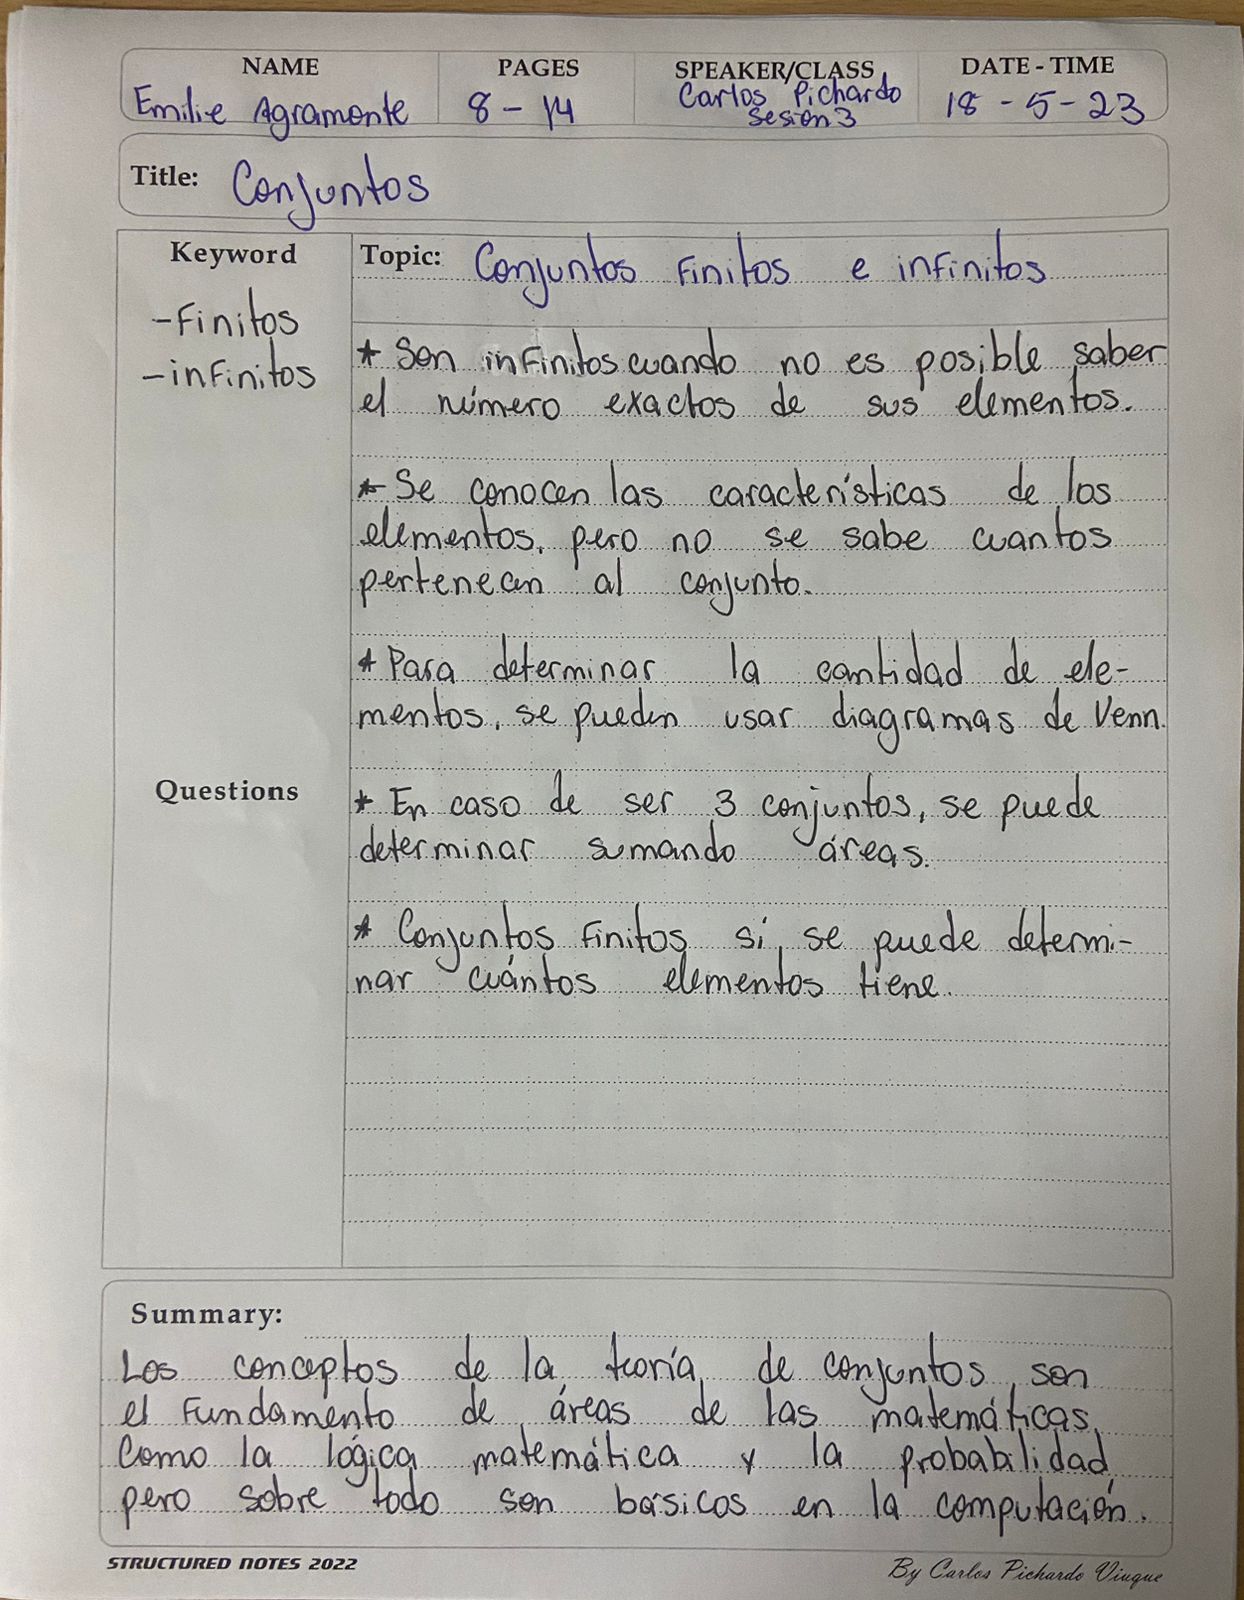 NAME
PAGES
SPEAKER/CLASS
DATE - TIME
Emilie Agramonte
8 - 14
Carlos Pichardo
Sesion 3
18 - 5 - 23
Title: Conjuntos
Keyword
- Finitos
- infinitos
Topic: Conjuntos Finitos e infinitos
* Son infinitos cuando no es posible saber
el número exactos de sus elementos.
* Se conocen las características de los
elementos, pero no se sabe cuantos
pertenecen al conjunto.
* Para determinar la cantidad de ele-
mentos, se pueden usar diagramas de Venn.
Questions
* En caso de ser 3 conjuntos, se puede
determinar sumando áreas.
* Conjuntos Finitos sí, se puede determi-
nar cuántos elementos tiene.
Summary:
Los conceptos de la teoría de conjuntos son
el Fundamento de áreas de las matemáticas,
Como la lógica matemática y la probabilidad
pero sobre todo son básicos en la computación.
STRUCTURED NOTES 2022
By Carlos Pichardo Viuque